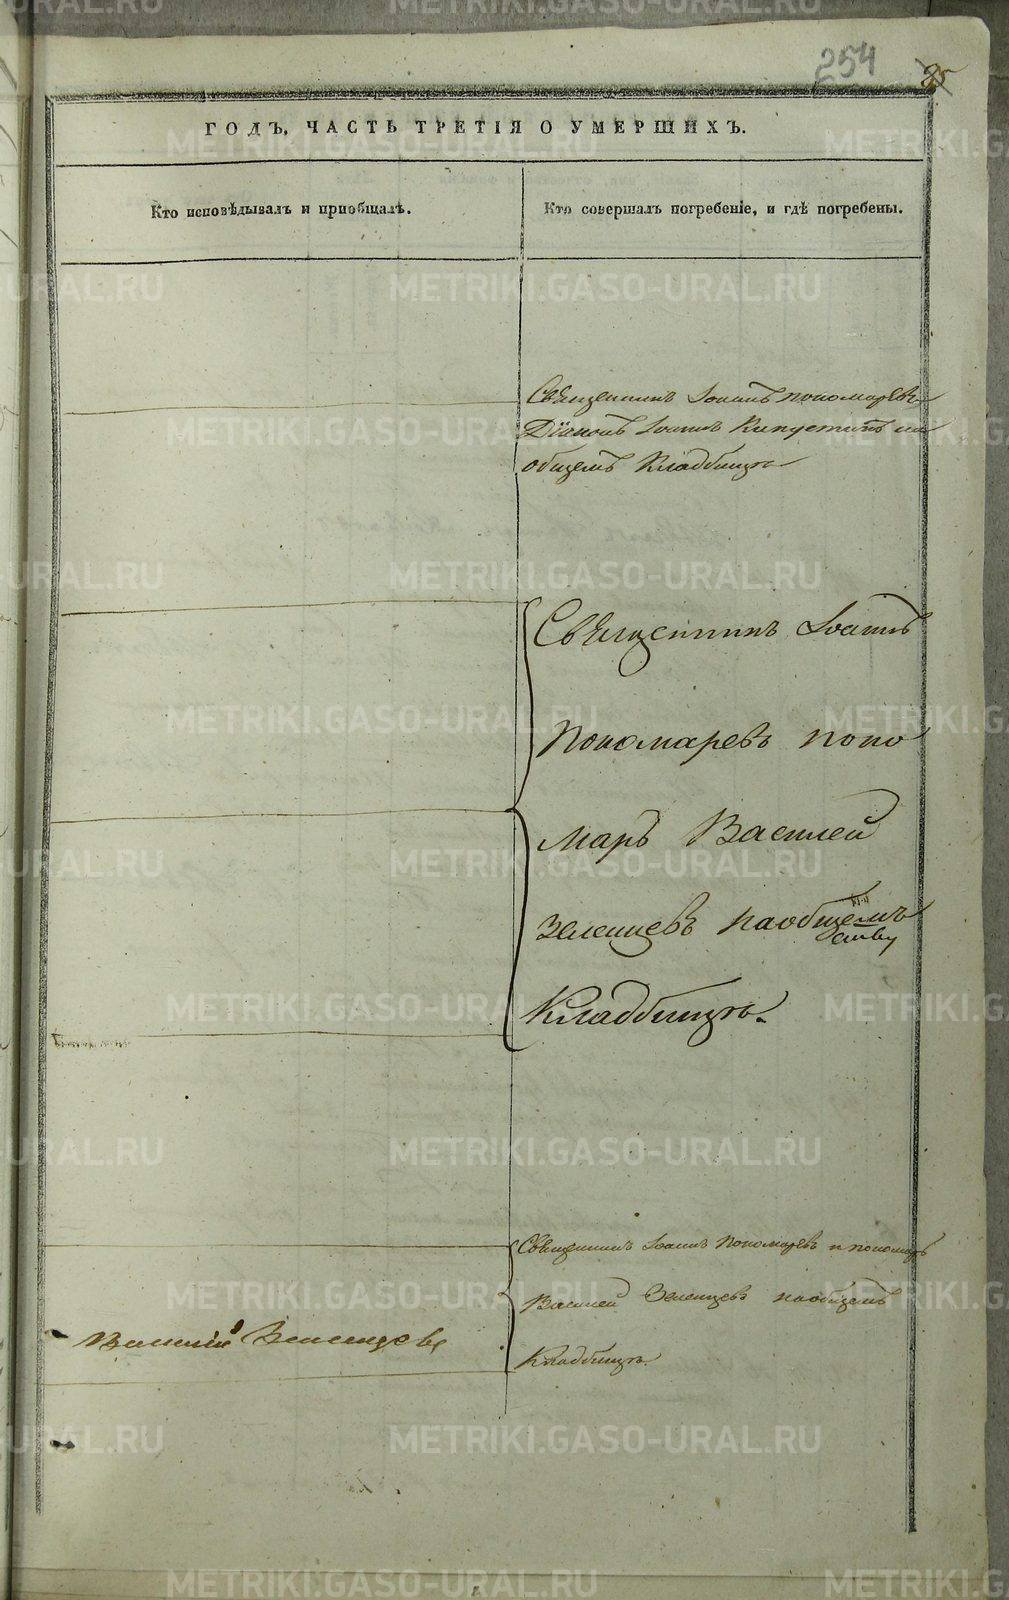 254
85
ГОДЪ, ЧАСТЬ ТРЕТІЯ О УМЕРШИХЪ.
Кто исповѣдывалъ и пріобщалъ.
Кто совершалъ погребеніе, и гдѣ погребены.
Священникъ Іоаннъ пономаревъ
Діаконъ Іоаннъ Капустинъ на
общемъ Кладбищѣ
Священникъ Іоаннъ
Пономаревъ поно
марь Василей
Зеленцевъ наобщемъ
Кладбищѣ.
Священникъ Іоаннъ Пономаревъ и пономарь
Василей Зеленцевъ наобщемъ
Кладбищѣ.
Василій Зеленцовъ
METRIKI.GASO-URAL.RU